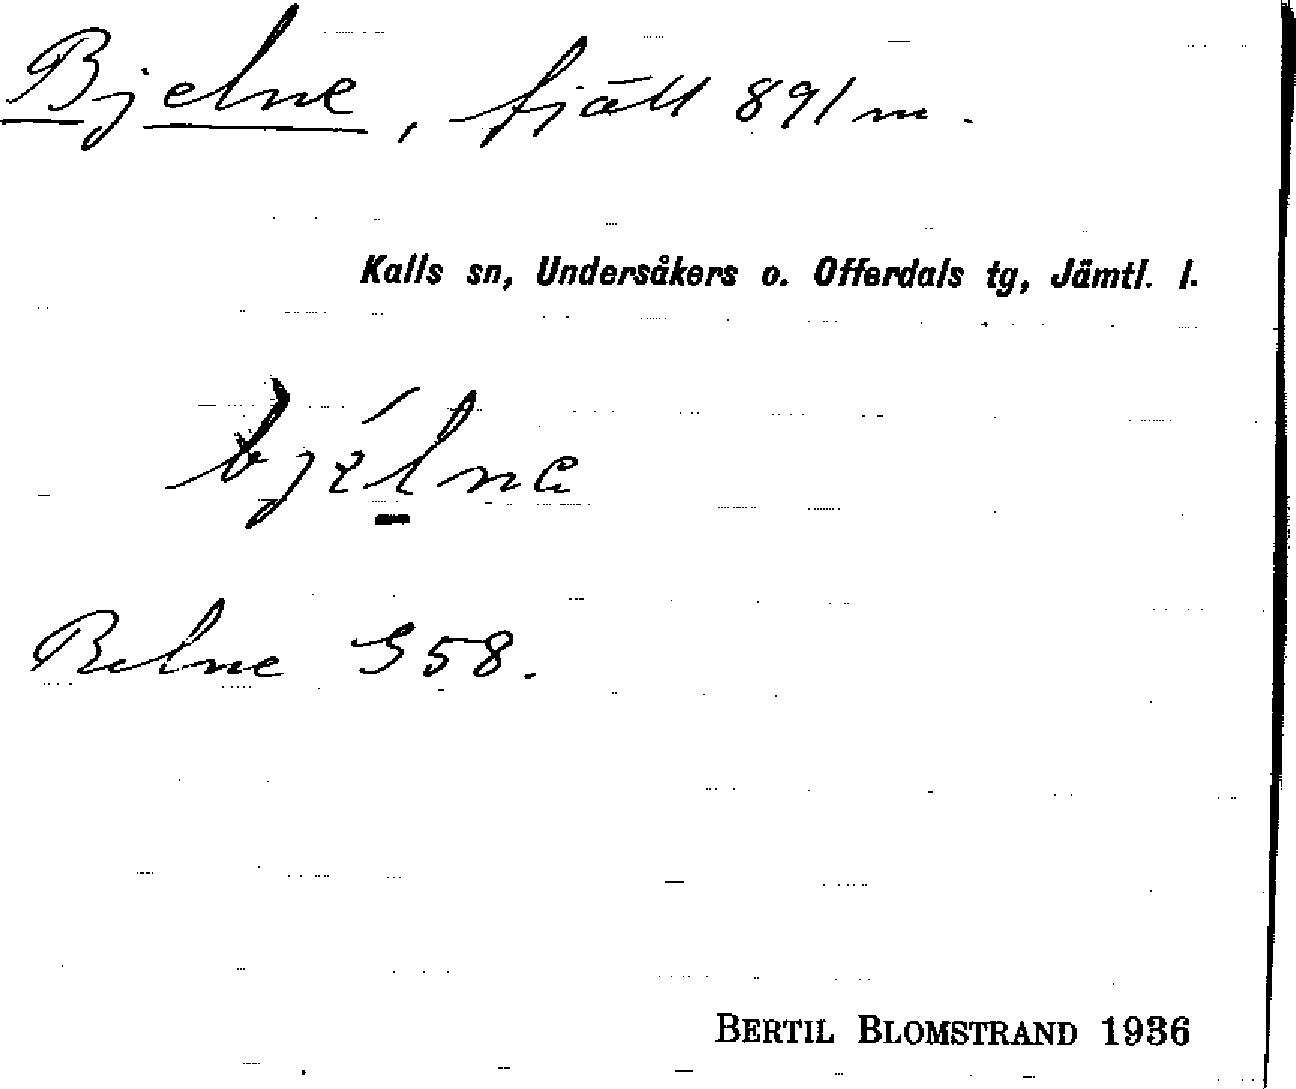 Bjelne, fjäll 891 m.
Kalls sn, Undersåkers o. Offerdals tg, Jämtl. l.
Belne S 58.
BERTIL BLOMSTRAND 1936